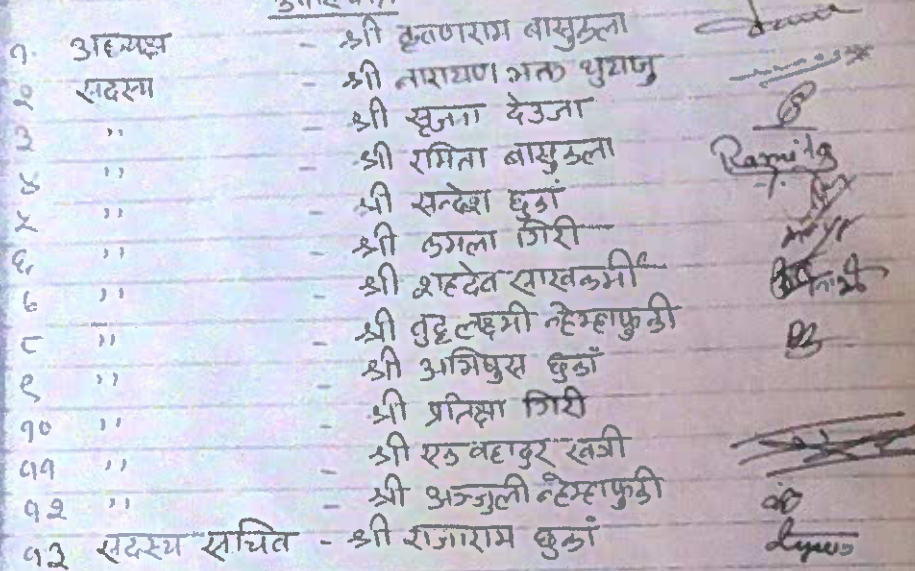 उपस्थिति
१. अध्यक्ष - श्री कृष्णराम बासुकला
२ सदस्य - श्री नारायण भक्त थुयाजु
३ " - श्री सृजना देउजा
४ " - श्री रमिता बासुकला Ramita
५ " - श्री सन्देश छुकां
६ " - श्री कमला गिरी
७ " - श्री शहदेव साखकर्मी
८ " - श्री बुद्ध लक्ष्मी न्हेम्हाफुकी
९ " - श्री अभिषुस छुकां
१० " श्री प्रतिक्षा गिरी
११ " - श्री एक बहादुर खत्री
१२ " - श्री अञ्जुली न्हेम्हाफुकी
१३ सदस्य सचिव - श्री राजाराम छुकां